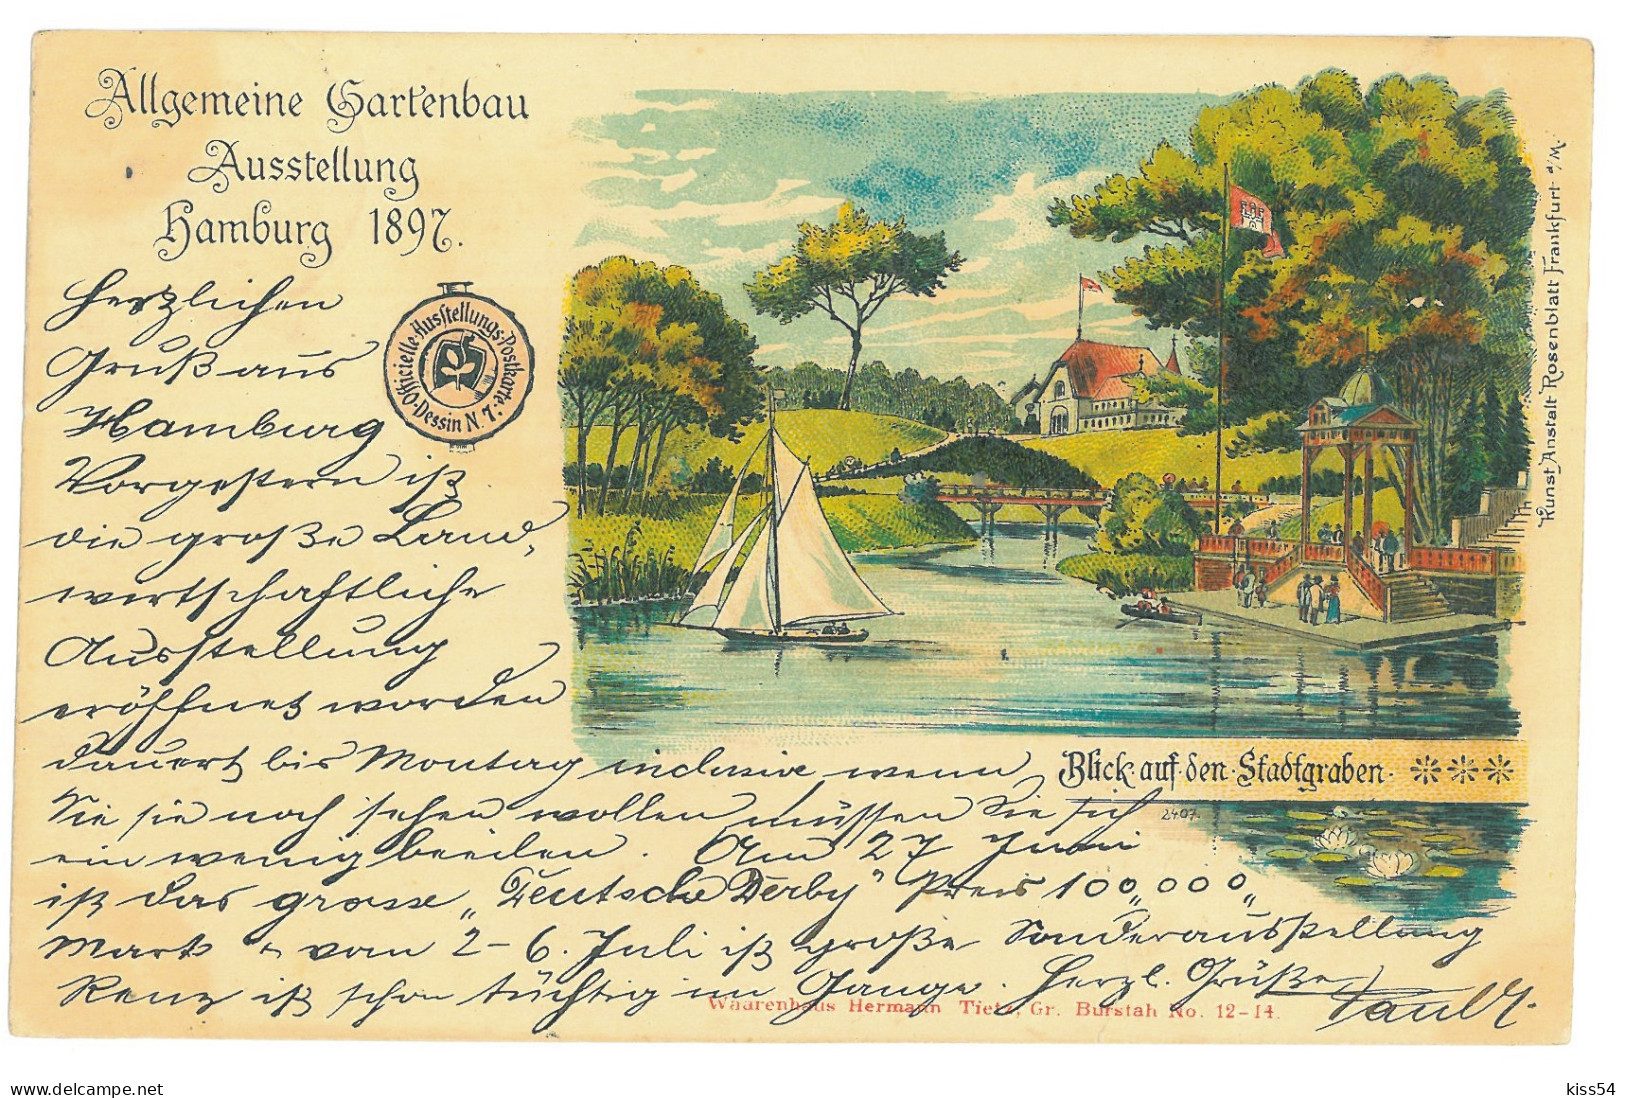 Allgemeine Gartenbau
Ausstellung
Hamburg 1897.
Officielle-Ausstellungs-Postkarte
Dessin N. 7.
Herzlichen
Gruß aus
Hamburg
Vorgestern ist
die große Land,
wirtschaftliche
Ausstellung
eröffnet worden
dauert bis Montag inclusive wenn
Sie sie noch sehen wollen müssen Sie sich
ein wenig beeilen. Am 27 Juni
ist das grosse „Deutsche Derby" Preis 100,000„
Mark + vom 2-6. Juli ist große Sonderausstellung
Renz ist schon tüchtig im Gange. Herzl. Grüße
Paul
Blick auf den Stadtgraben
2407.
Kunst Anstalt Rosenblatt Frankfurt a/M.
Waarenhaus Hermann Tietz, Gr. Burstah No. 12-14.
www.delcampe.net
kiss54